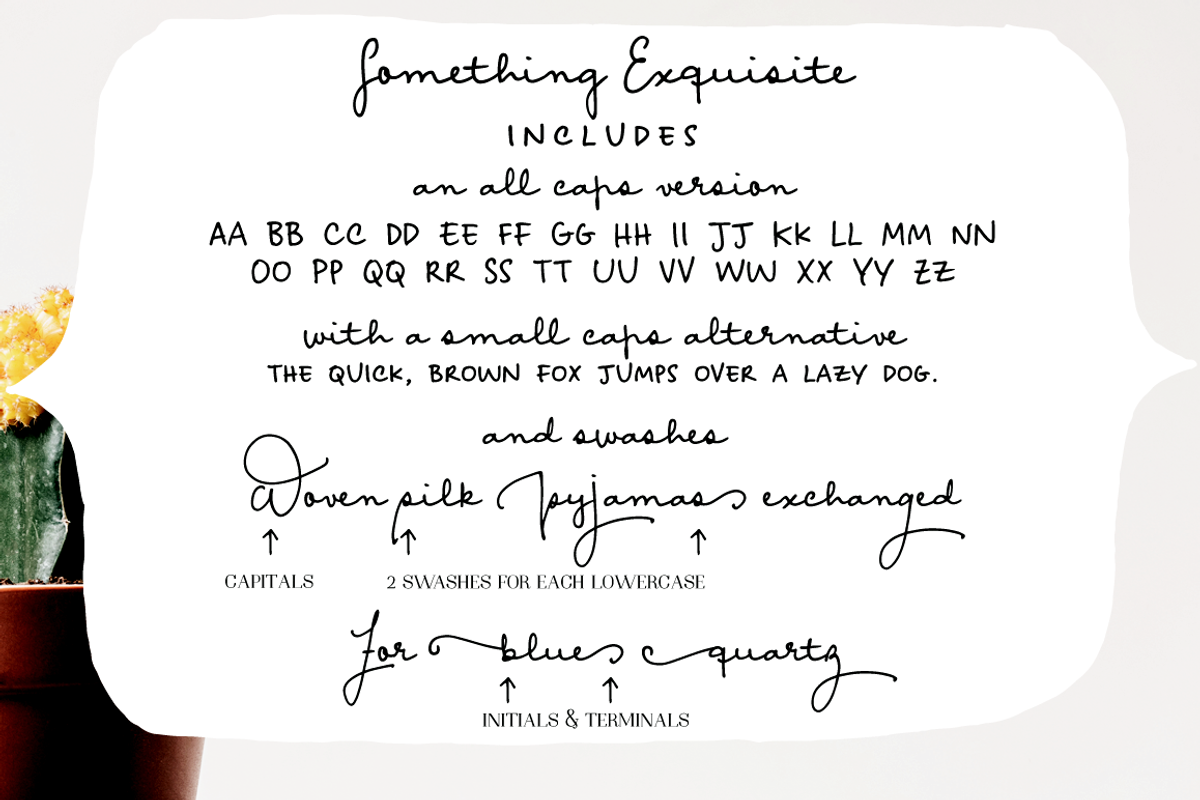 Something Exquisite
INCLUDES
an all caps version
AA BB CC DD EE FF GG HH II JJ KK LL MM NN
OO PP QQ RR SS TT UU VV WW XX YY ZZ
with a small caps alternative
THE QUICK, BROWN FOX JUMPS OVER A LAZY DOG.
and swashes
Woven silk pyjamas exchanged
↑ ↑ ↑
CAPITALS 2 SWASHES FOR EACH LOWERCASE
for blue quartz
↑ ↑
INITIALS & TERMINALS